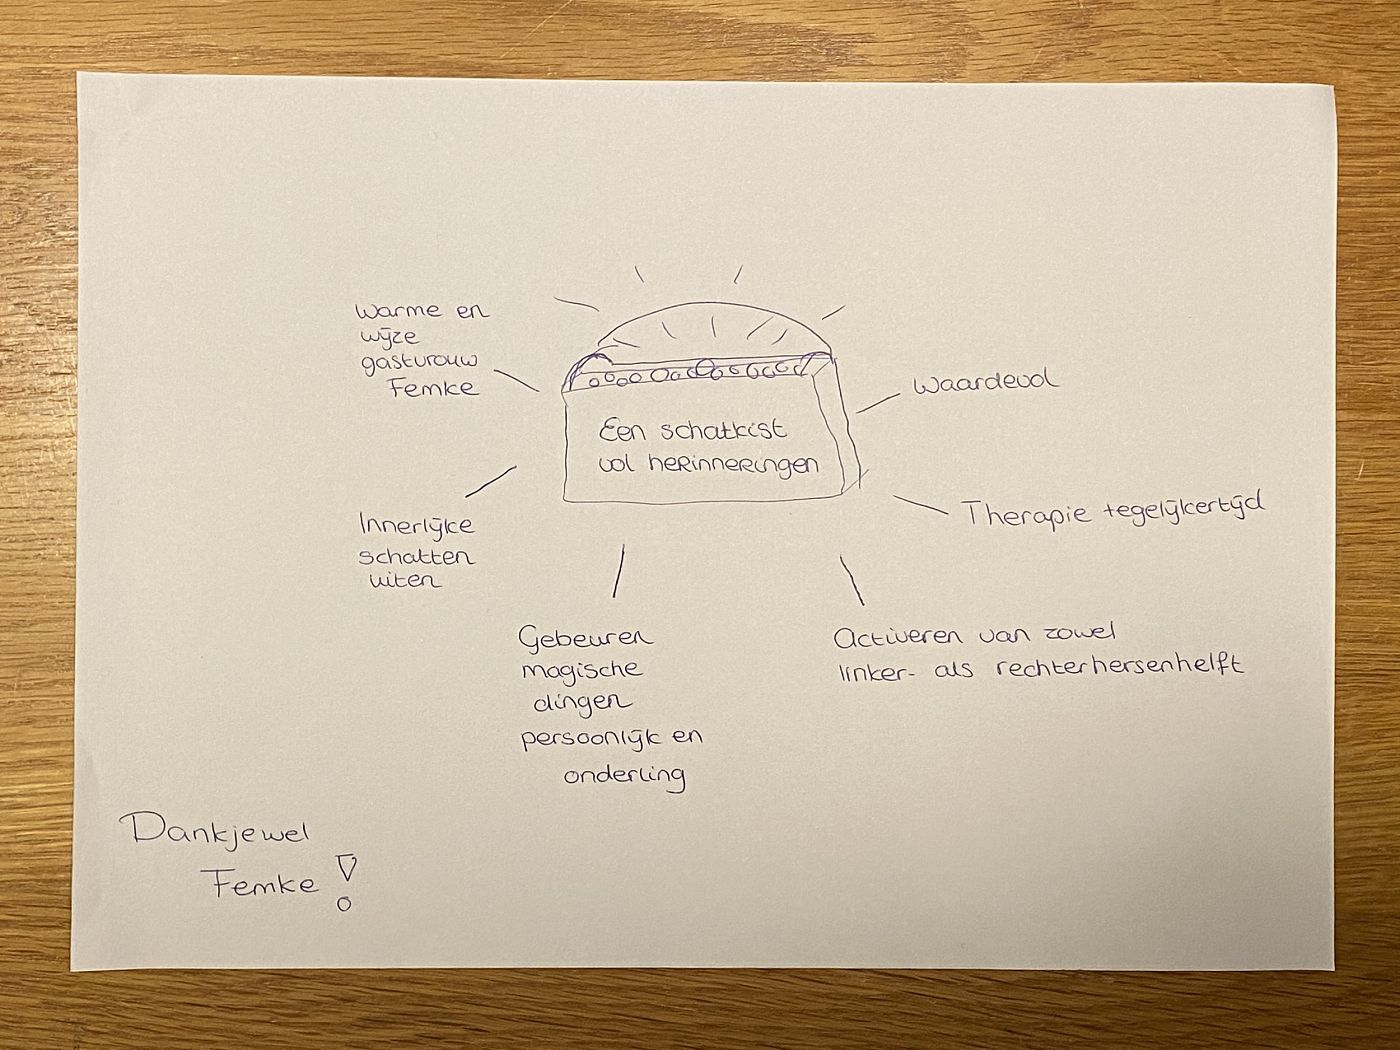 Warme en
wijze
gastvrouw
Femke
Een schatkist
vol herinneringen
Waardevol
Therapie tegelijkertijd
Innerlijke
schatten
uiten
Gebeuren
magische
dingen
persoonlijk en
onderling
Activeren van zowel
linker- als rechterhersenhelft
Dankjewel
Femke!